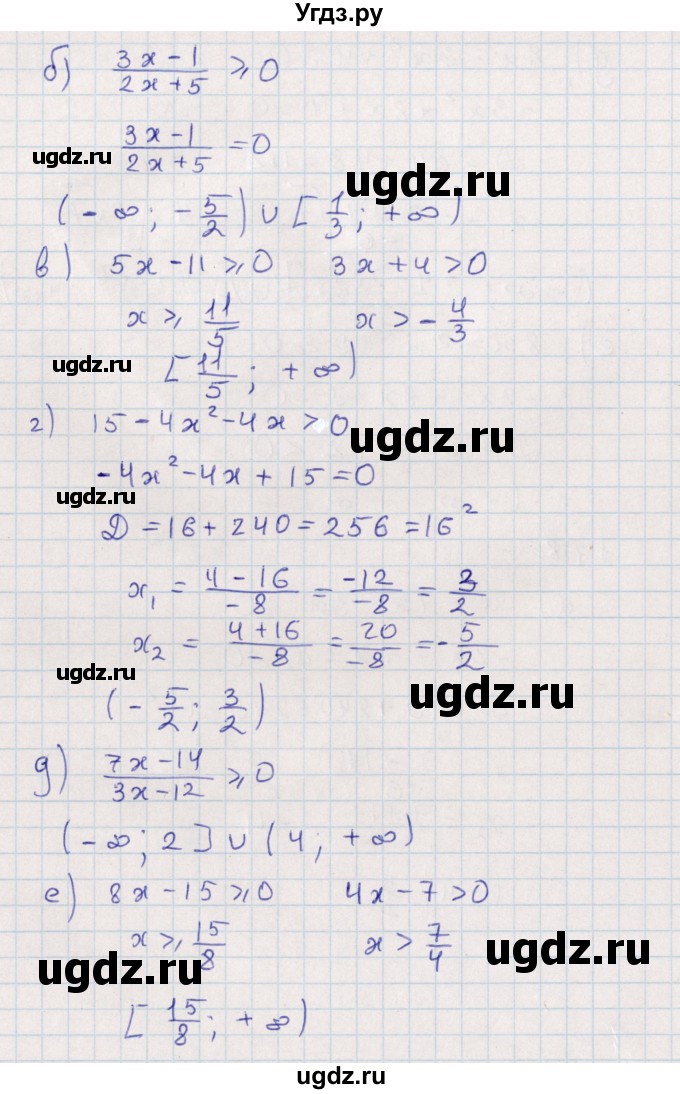 Угдз.ру
б) (3x - 1)/(2x + 5) ⩾ 0
(3x - 1)/(2x + 5) = 0
ugdz.ru
ugdz.ru
(-∞; -5/2) ∪ [1/3; +∞)
в) 5x - 11 ⩾ 0 3x + 4 > 0
x ⩾ 11/5 x > -4/3
ugdz.ru
[11/5; +∞)
г) 15 - 4x² - 4x > 0
ugdz.ru
-4x² - 4x + 15 = 0
ugdz.ru
D = 16 + 240 = 256 = 16²
x₁ = (4 - 16)/-8 = -12/-8 = 3/2
x₂ = (4 + 16)/-8 = 20/-8 = -5/2
ugdz.ru
ugdz.ru
(-5/2; 3/2)
д) (7x - 14)/(3x - 12) ⩾ 0
(-∞; 2] ∪ (4; +∞)
е) 8x - 15 ⩾ 0 4x - 7 > 0
x ⩾ 15/8 x > 7/4
ugdz.ru
ugdz.ru
[15/8; +∞)
ugdz.ru